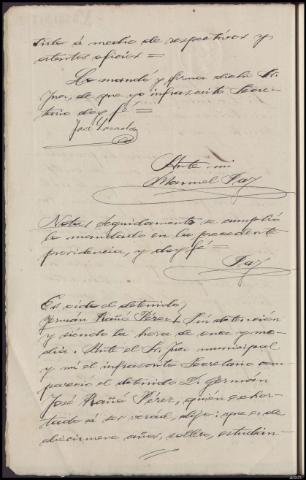 por medio de respectivos y
atentos oficios =
Lo mandó y firma dicho Sr.
Juez, de que yo infrascrito Secre-
tario doy fé =
José
Ante mi
Manuel Paz
Nota: Seguidamente se cumplió
lo mandado en la precedente
providencia, y doy fé =
Paz
del detenido,
Germán Rañó Pérez. Sin detención
y siendo la hora de once y me-
dia: Ante el Sr. Juez municipal
y mi el infrascrito Secretario com-
pareció el detenido D. Germán
José Rañó Pérez, quién exhor-
tado á ser veraz, dijo: que es de
diecinueve años, soltero, estudian-